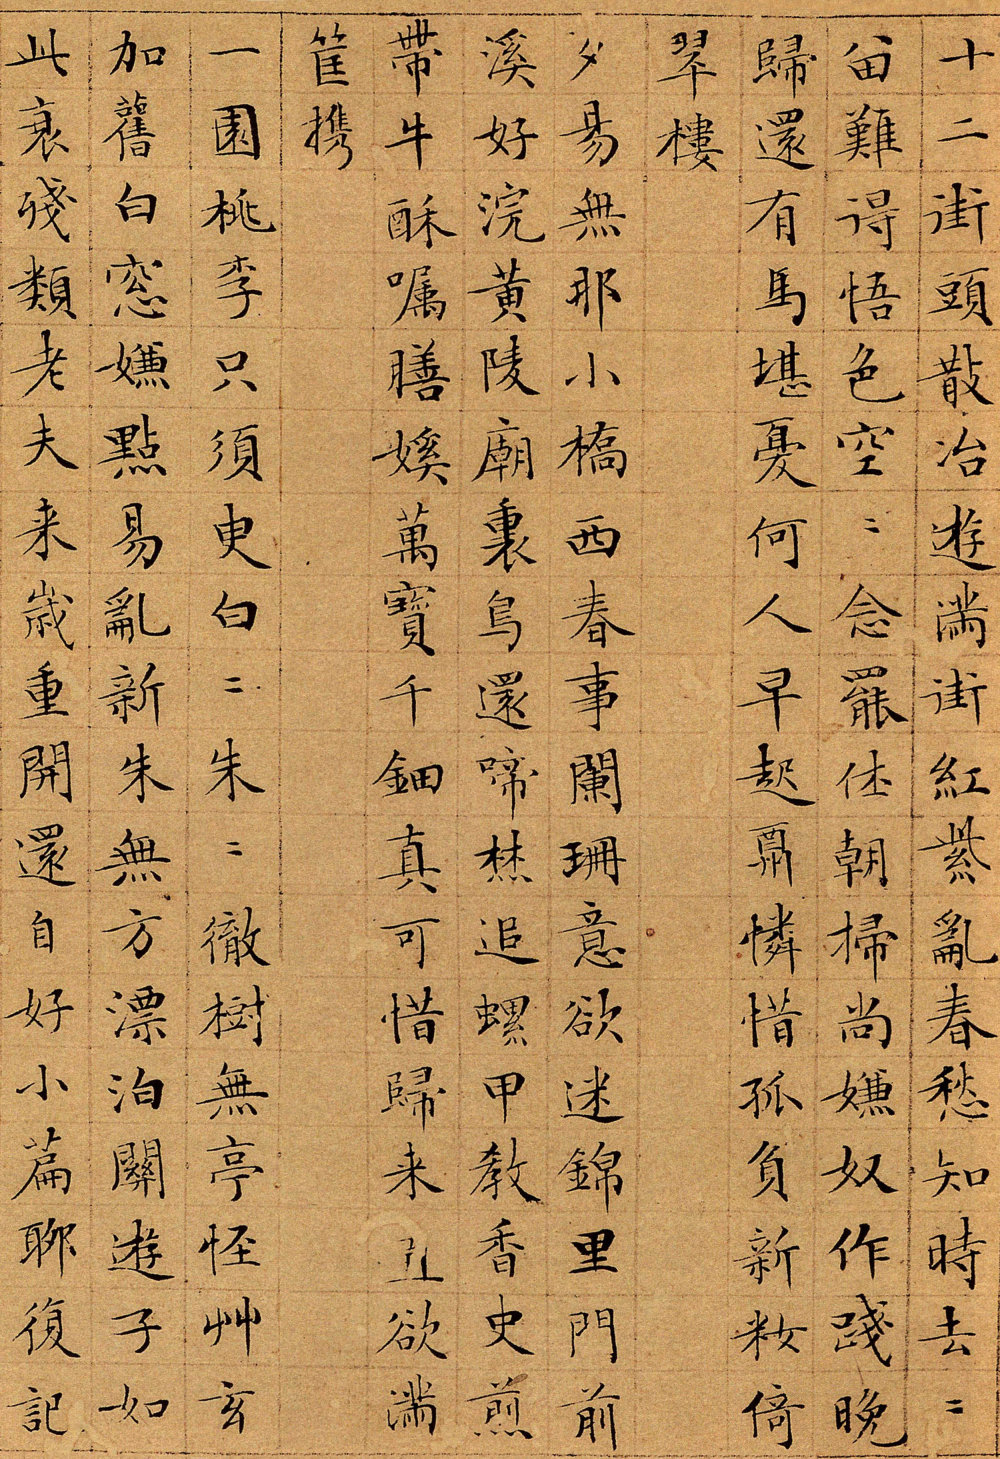 十二街頭散冶遊滿街紅紫亂春愁知時去〻
畱難得悟色空〻念罷休朝掃尚嫌奴作踐晚
歸還有馬堪憂何人早起弄憐惜孤負新妝倚
翠樓
夕易無那小橋西春事闌珊意欲迷錦里門前
溪好浣黃陵廟裏鳥還啼焚追螺甲教香史煎
帶牛酥囑膳媛萬寶千鈿真可惜歸来丑欲滿
筐携
一園桃李只須臾白〻朱〻徹樹無亭怪艸玄
加舊白窓嫌點易亂新朱無方漂泊關遊子如
此衰殘類老夫来歲重開還自好小篇聊復記